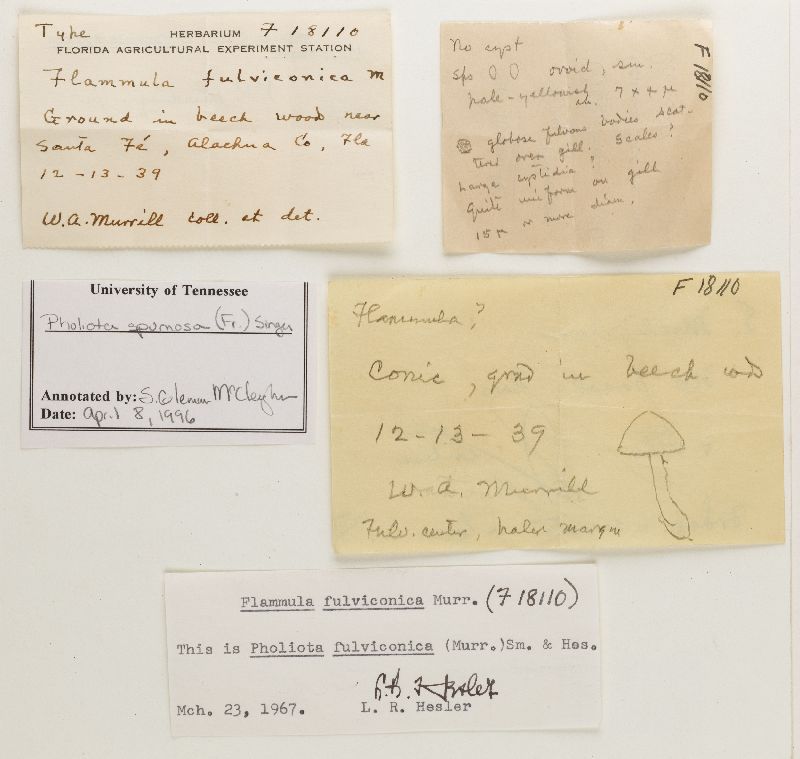 Type HERBARIUM F 18110
FLORIDA AGRICULTURAL EXPERIMENT STATION
Flammula fulviconica M
Ground in beech wood near
Santa Fé, Alachua Co, Fla
12-13-39
W.A. Murrill coll. et det.
F 18110
No cyst
sps 0 0 ovoid, sm.
pale-yellowish 7 x 4 µ
globose fulvous bodies scat-
tered over gill. Scales?
Large cystidia?
Quite uniform on gill
15 µ or more diam.
University of Tennessee
Pholiota spumosa (Fr.) Singer
Annotated by: S. Glenn McCleghn
Date: April 8, 1996
F 18110
Flammula?
Conic, grnd in beech wd
12-13-39
W. A. Murrill
Fulv. center, paler margin
Flammula fulviconica Murr. (F 18110)
This is Pholiota fulviconica (Murr.)Sm. & Hes.
L. R. Hesler
Mch. 23, 1967. L. R. Hesler